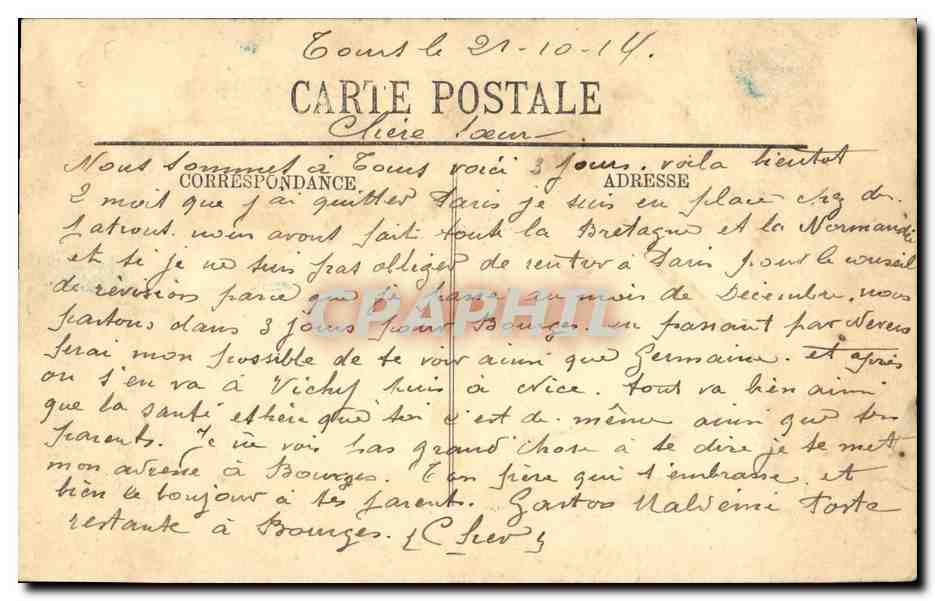 Tours le 21-10-14.
CARTE POSTALE
Chère Sœur
Nous sommes à Tours voici 3 jours. voila bientot
CORRESPONDANCE
ADRESSE
2 mois que j'ai quitter Paris je suis en place chez des
patrons. nous avons fait toute la Bretagne et la Normandie
et si je ne suis pas obliger de rentrer à Paris pour le conseil
de révision parce que je passe au mois de Décembre. nous
CPAPHIL
partons dans 3 jours pour Bourges. en passant par Nevers
ferai mon possible de te voir ainsi que Germaine. et après
on s'en va à Vichy puis à Nice. tout va bien ainsi
que la santé espère que toi c'est de même ainsi que tes
parents. Je ne vois pas grand chose à te dire je te met
mon adresse à Bourges. Ton frère qui t'embrasse et
bien le bonjour à tes parents. Gaston Poste
restante à Bourges. (Cher)